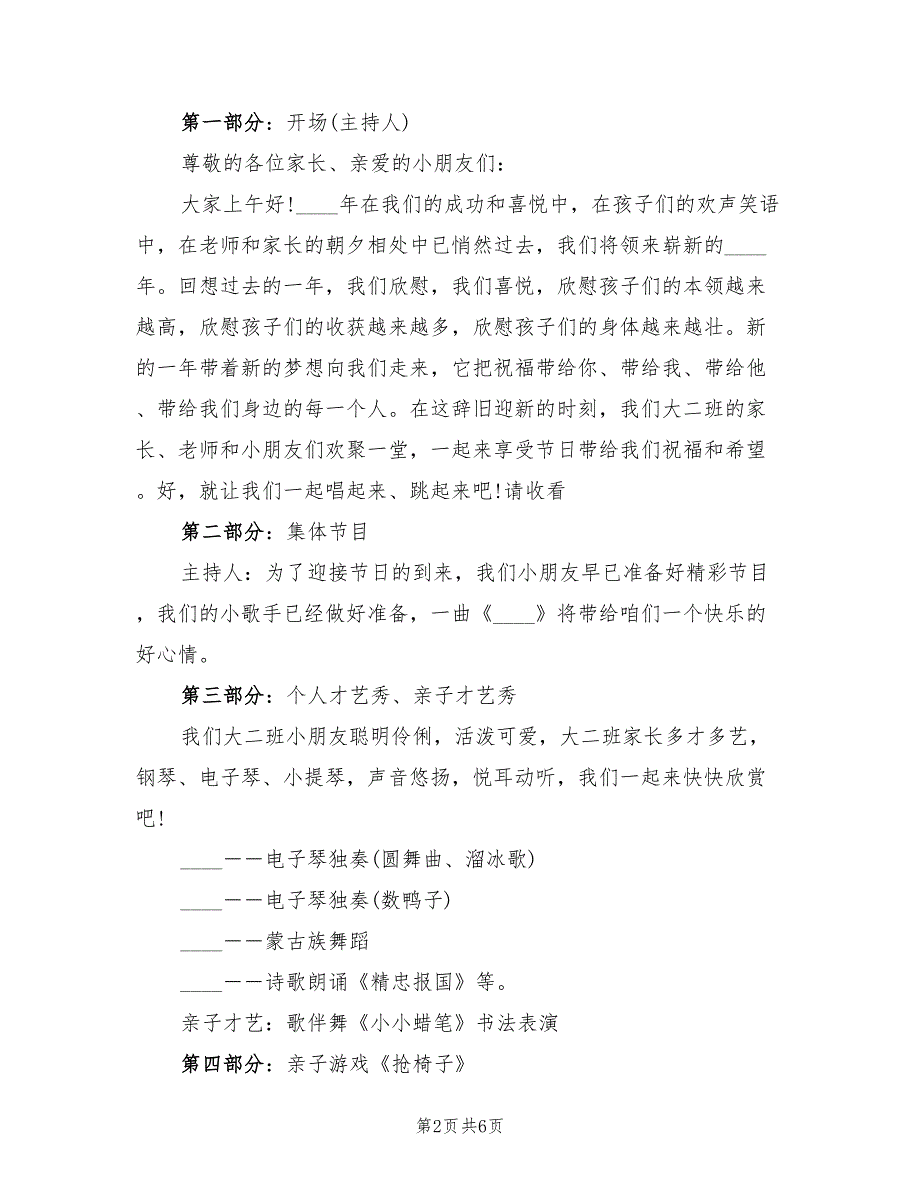 第一部分：开场(主持人)
尊敬的各位家长、亲爱的小朋友们：
大家上午好!____年在我们的成功和喜悦中，在孩子们的欢声笑语
中，在老师和家长的朝夕相处中已悄然过去，我们将领来崭新的____
年。回想过去的一年，我们欣慰，我们喜悦，欣慰孩子们的本领越来
越高，欣慰孩子们的收获越来越多，欣慰孩子们的身体越来越壮。新
的一年带着新的梦想向我们走来，它把祝福带给你、带给我、带给他
、带给我们身边的每一个人。在这辞旧迎新的时刻，我们大二班的家
长、老师和小朋友们欢聚一堂，一起来享受节日带给我们祝福和希望
。好，就让我们一起唱起来、跳起来吧!请收看
第二部分：集体节目
主持人：为了迎接节日的到来，我们小朋友早已准备好精彩节目
，我们的小歌手已经做好准备，一曲《____》将带给咱们一个快乐的
好心情。
第三部分：个人才艺秀、亲子才艺秀
我们大二班小朋友聪明伶俐，活泼可爱，大二班家长多才多艺，
钢琴、电子琴、小提琴，声音悠扬，悦耳动听，我们一起来快快欣赏
吧!
____－－电子琴独奏(圆舞曲、溜冰歌)
____－－电子琴独奏(数鸭子)
____－－蒙古族舞蹈
____－－诗歌朗诵《精忠报国》等。
亲子才艺：歌伴舞《小小蜡笔》书法表演
第四部分：亲子游戏《抢椅子》
第2页 共6页